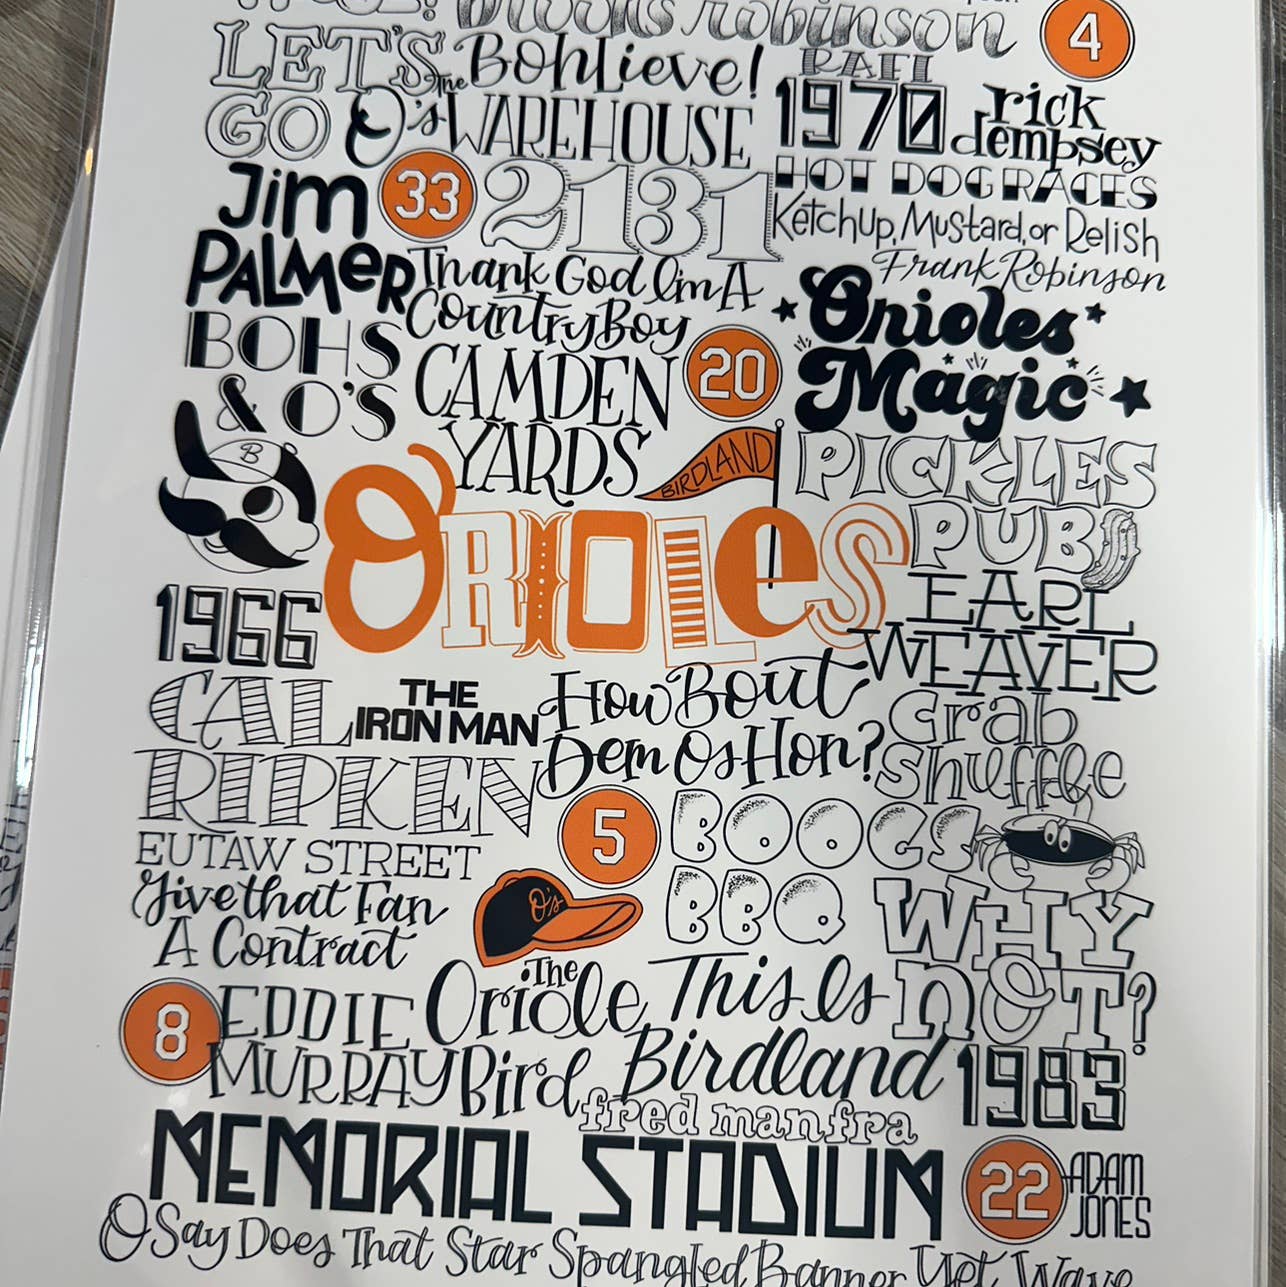 Brooks Robinson
4
LET'S
GO
The
O's
Bohlieve!
WAREHOUSE
RAFI
1970
rick
dempsey
Jim
PALMER
33
2131
HOT DOG RACES
Ketchup, Mustard, or Relish
Frank Robinson
Thank God I'm A
Country Boy
Orioles
Magic
BOHS
& O'S
CAMDEN
YARDS
20
B
BIRDLAND
PICKLES
PUB
ORIOLES
1966
EARL
WEAVER
CAL
RIPKEN
THE
IRON MAN
How Bout
Dem Os Hon?
Crab
Shuffle
5
BOOGS
BBQ
EUTAW STREET
Give that Fan
A Contract
O's
WHY
NOT?
8
EDDIE
MURRAY
The
Oriole
Bird
This Is
Birdland
1983
fred manfra
MEMORIAL STADIUM
22
ADAM
JONES
O Say Does That Star Spangled Banner Yet Wave